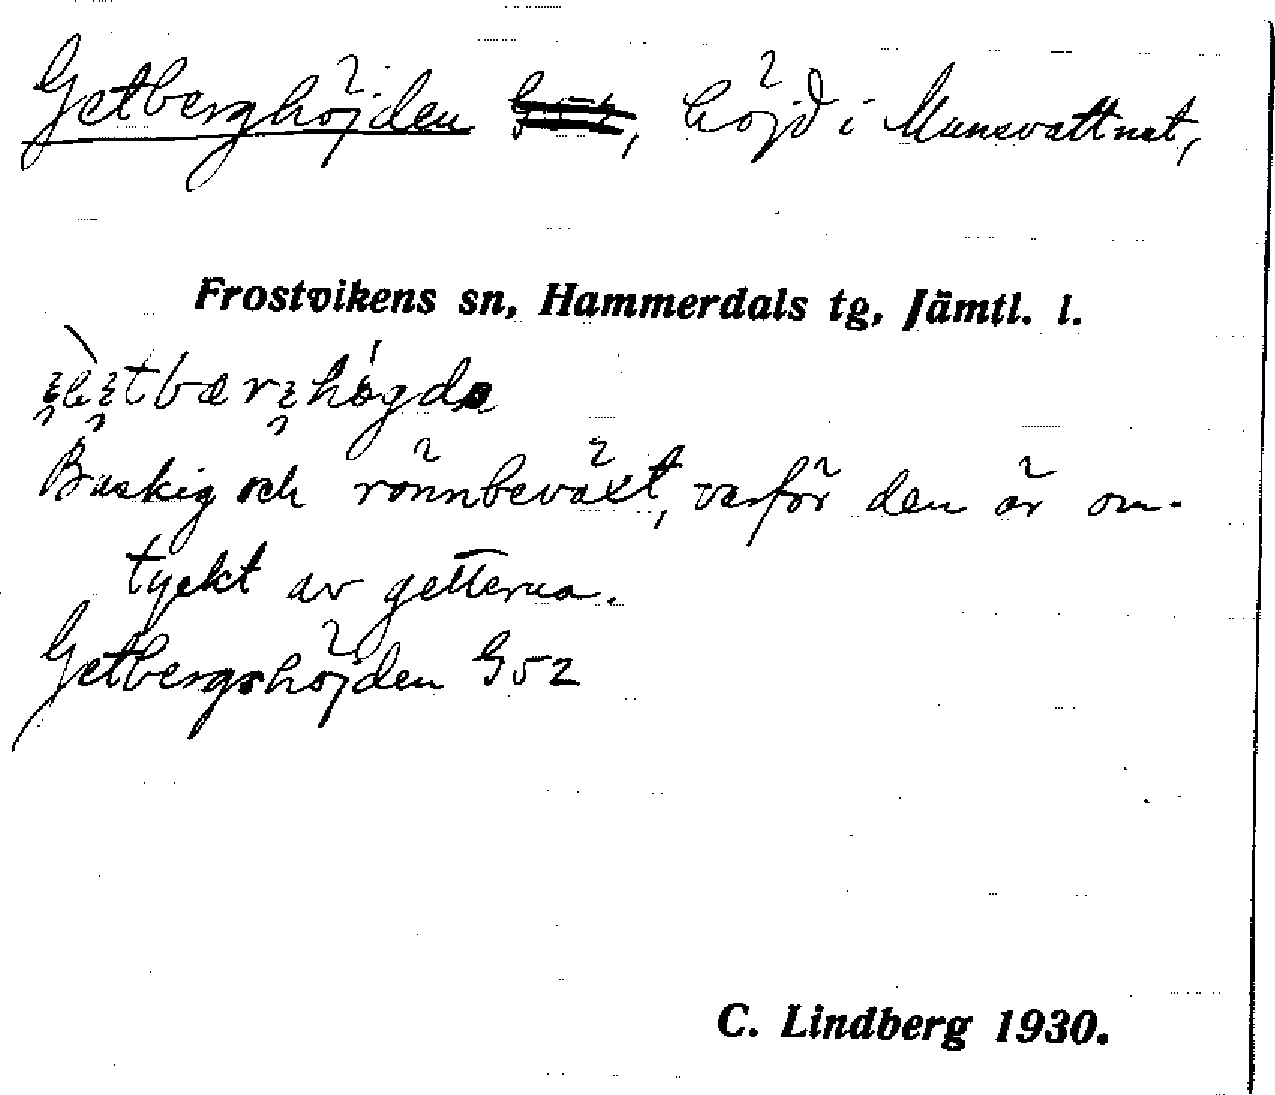 Getberghöjden G52, höjd i Munsvattnet,
Frostvikens sn, Hammerdals tg, Jämtl. l.
Buskig och rönnbeväxt, varför den är om-
tyckt av getterna.
Getbergshöjden G52
C. Lindberg 1930.